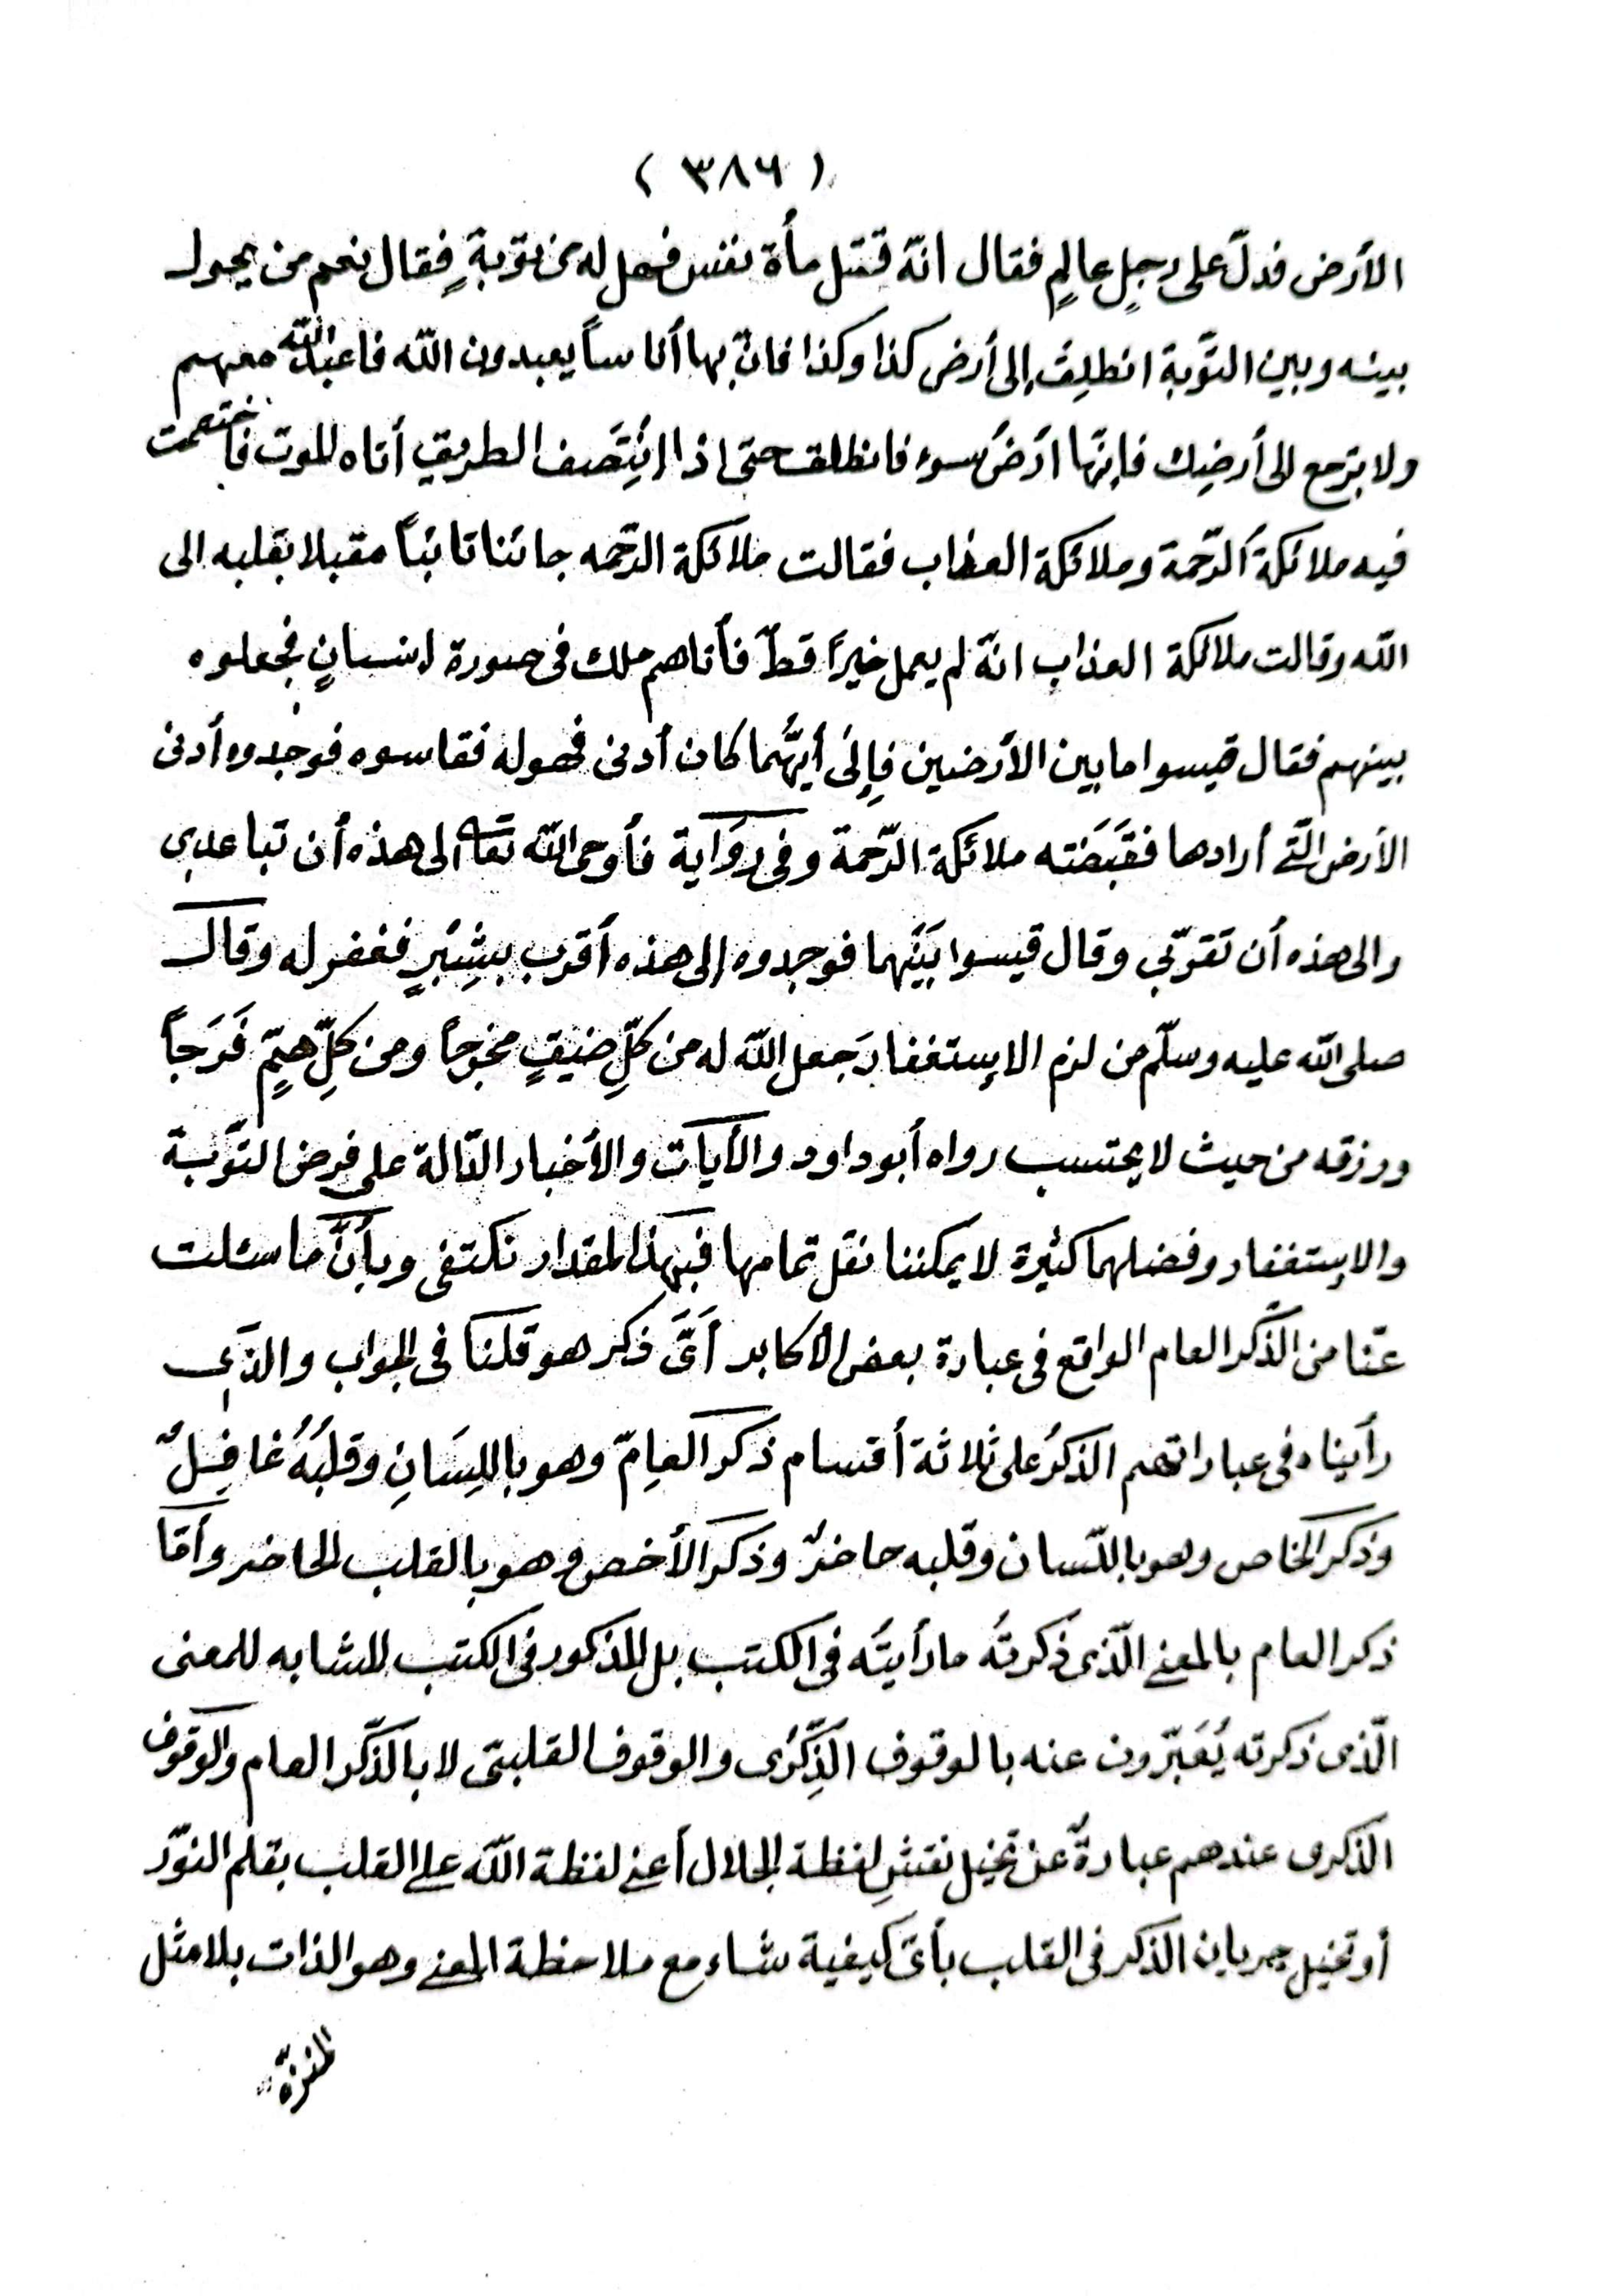 ( ٣٨٦ )
الأرض فدلّ على رجلٍ عالمٍ فقال انّه قتل مأة نفس فهل له من توبةٍ فقال نعم من يحول
بينه وبين التّوبة انطلِق إلى أرض كذا وكذا فانّ بها أناساً يعبدون الله فاعبد الله معهم
ولا ترجع الى أرضِك فإنّها ارَضُ سوء فانطلق حتى اذا انتَصف الطريق أتاه الموت فاختصمت
فيه ملائكةُ الرّحمة وملائكة العذاب فقالت ملائكة الرّحمه جائنا تائباً مقبلا بقلبه الى
الله وقالت ملائكة العذاب انّه لم يعمل خيراً قطّ فأتاهم ملك فى صورة انسانٍ فجعلوه
بينهم فقال قيسوا ما بين الأرضين فإلى أيّهما كان أدنى فهو له فقاسوه فوجدوه أدنى
الأرض الّتى أرادها فقَبَضَته ملائكة الرّحمة وفى روَاية فأوحى الله تعا الى هذه أن تباعدى
والى هذه أن تقرّبى وقال قيسوا بَيَنهما فوجدوه إلى هذه أقرب بشِبْرٍ فغفر له وقال
صلى الله عليه وسلّم من لزم الاستغفارَ جعل الله له من كلِّ ضيقٍ مخرجاً ومن كلِّ همٍّ فَرَجاً
ورزقه من حيث لا يحتسب رواه أبوداود والأيات والأخبار الدّالة على فرض التوّبة
والاستغفار وفضلهما كثيرة لا يمكننا نقل تمامها فبهذا المقدار نكتفى وبأنّ ما سئلت
عنّا من الذّكر العام الواقع فى عبارة بعض الأكابر أىَّ ذكر هو قلنا فى الجواب والذى
رأيناه فى عباراتهم الذكرُ على ثلاثة أقسام ذكر العامِّ وهو باللِسَانِ وقلبُهُ غافِلٌ
وذكر الخاص وهو باللّسان وقلبه حاضرٌ وذكر الأخص وهو بالقلب الحاضر وأمّا
ذكر العام بالمعنى الّذى ذكرتُه ما رأيتُه فى الكتب بل المذكور فى الكتب المشابه للمعنى
الّذى ذكرته يُعَبّرون عنه بالوقوف الذِّكرُى والوقوف القلبىّ لا بالذّكر العام والوقوف
الذكرى عندهم عبارةٌ عن تخيل نقشِ لفظة الجلال أعنى لفظة الله على القلب بقلم النّور
أو تخيل جريان الذكر فى القلب بأىّ كيفية شاء مع ملاحظة المعنى وهو الذات بلا مثل
المنزّه